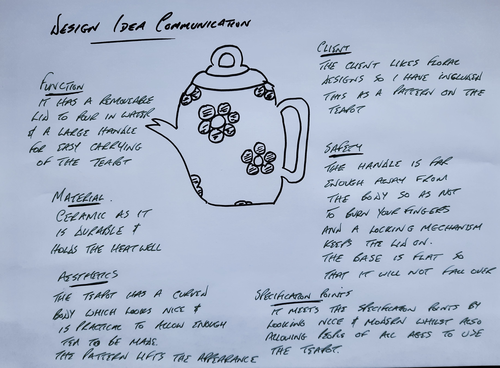 DESIGN IDEA COMMUNICATION
FUNCTION
IT HAS A REMOVEABLE
LID TO POUR IN WATER
& A LARGE HANDLE
FOR EASY CARRYING
OF THE TEAPOT
MATERIAL.
CERAMIC AS IT
IS DURABLE &
HOLDS THE HEAT WELL
AESTHETICS
THE TEAPOT HAS A CURVED
BODY WHICH LOOKS NICE &
IS PRACTICAL TO ALLOW ENOUGH
TEA TO BE MADE.
THE PATTERN LIFTS THE APPEARANCE
CLIENT
THE CLIENT LIKES FLORAL
DESIGNS SO I HAVE INCLUDED
THIS AS A PATTERN ON THE
TEAPOT
SAFETY
THE HANDLE IS FAR
ENOUGH AWAY FROM
THE BODY SO AS NOT
TO BURN YOUR FINGERS
AND A LOCKING MECHANISM
KEEPS THE LID ON.
THE BASE IS FLAT SO
THAT IT WILL NOT FALL OVER
SPECIFICATION POINTS
IT MEETS THE SPECIFICATION POINTS BY
LOOKING NICE & MODERN WHILST ALSO
ALLOWING PEOPLE OF ALL AGES TO USE
THE TEAPOT.